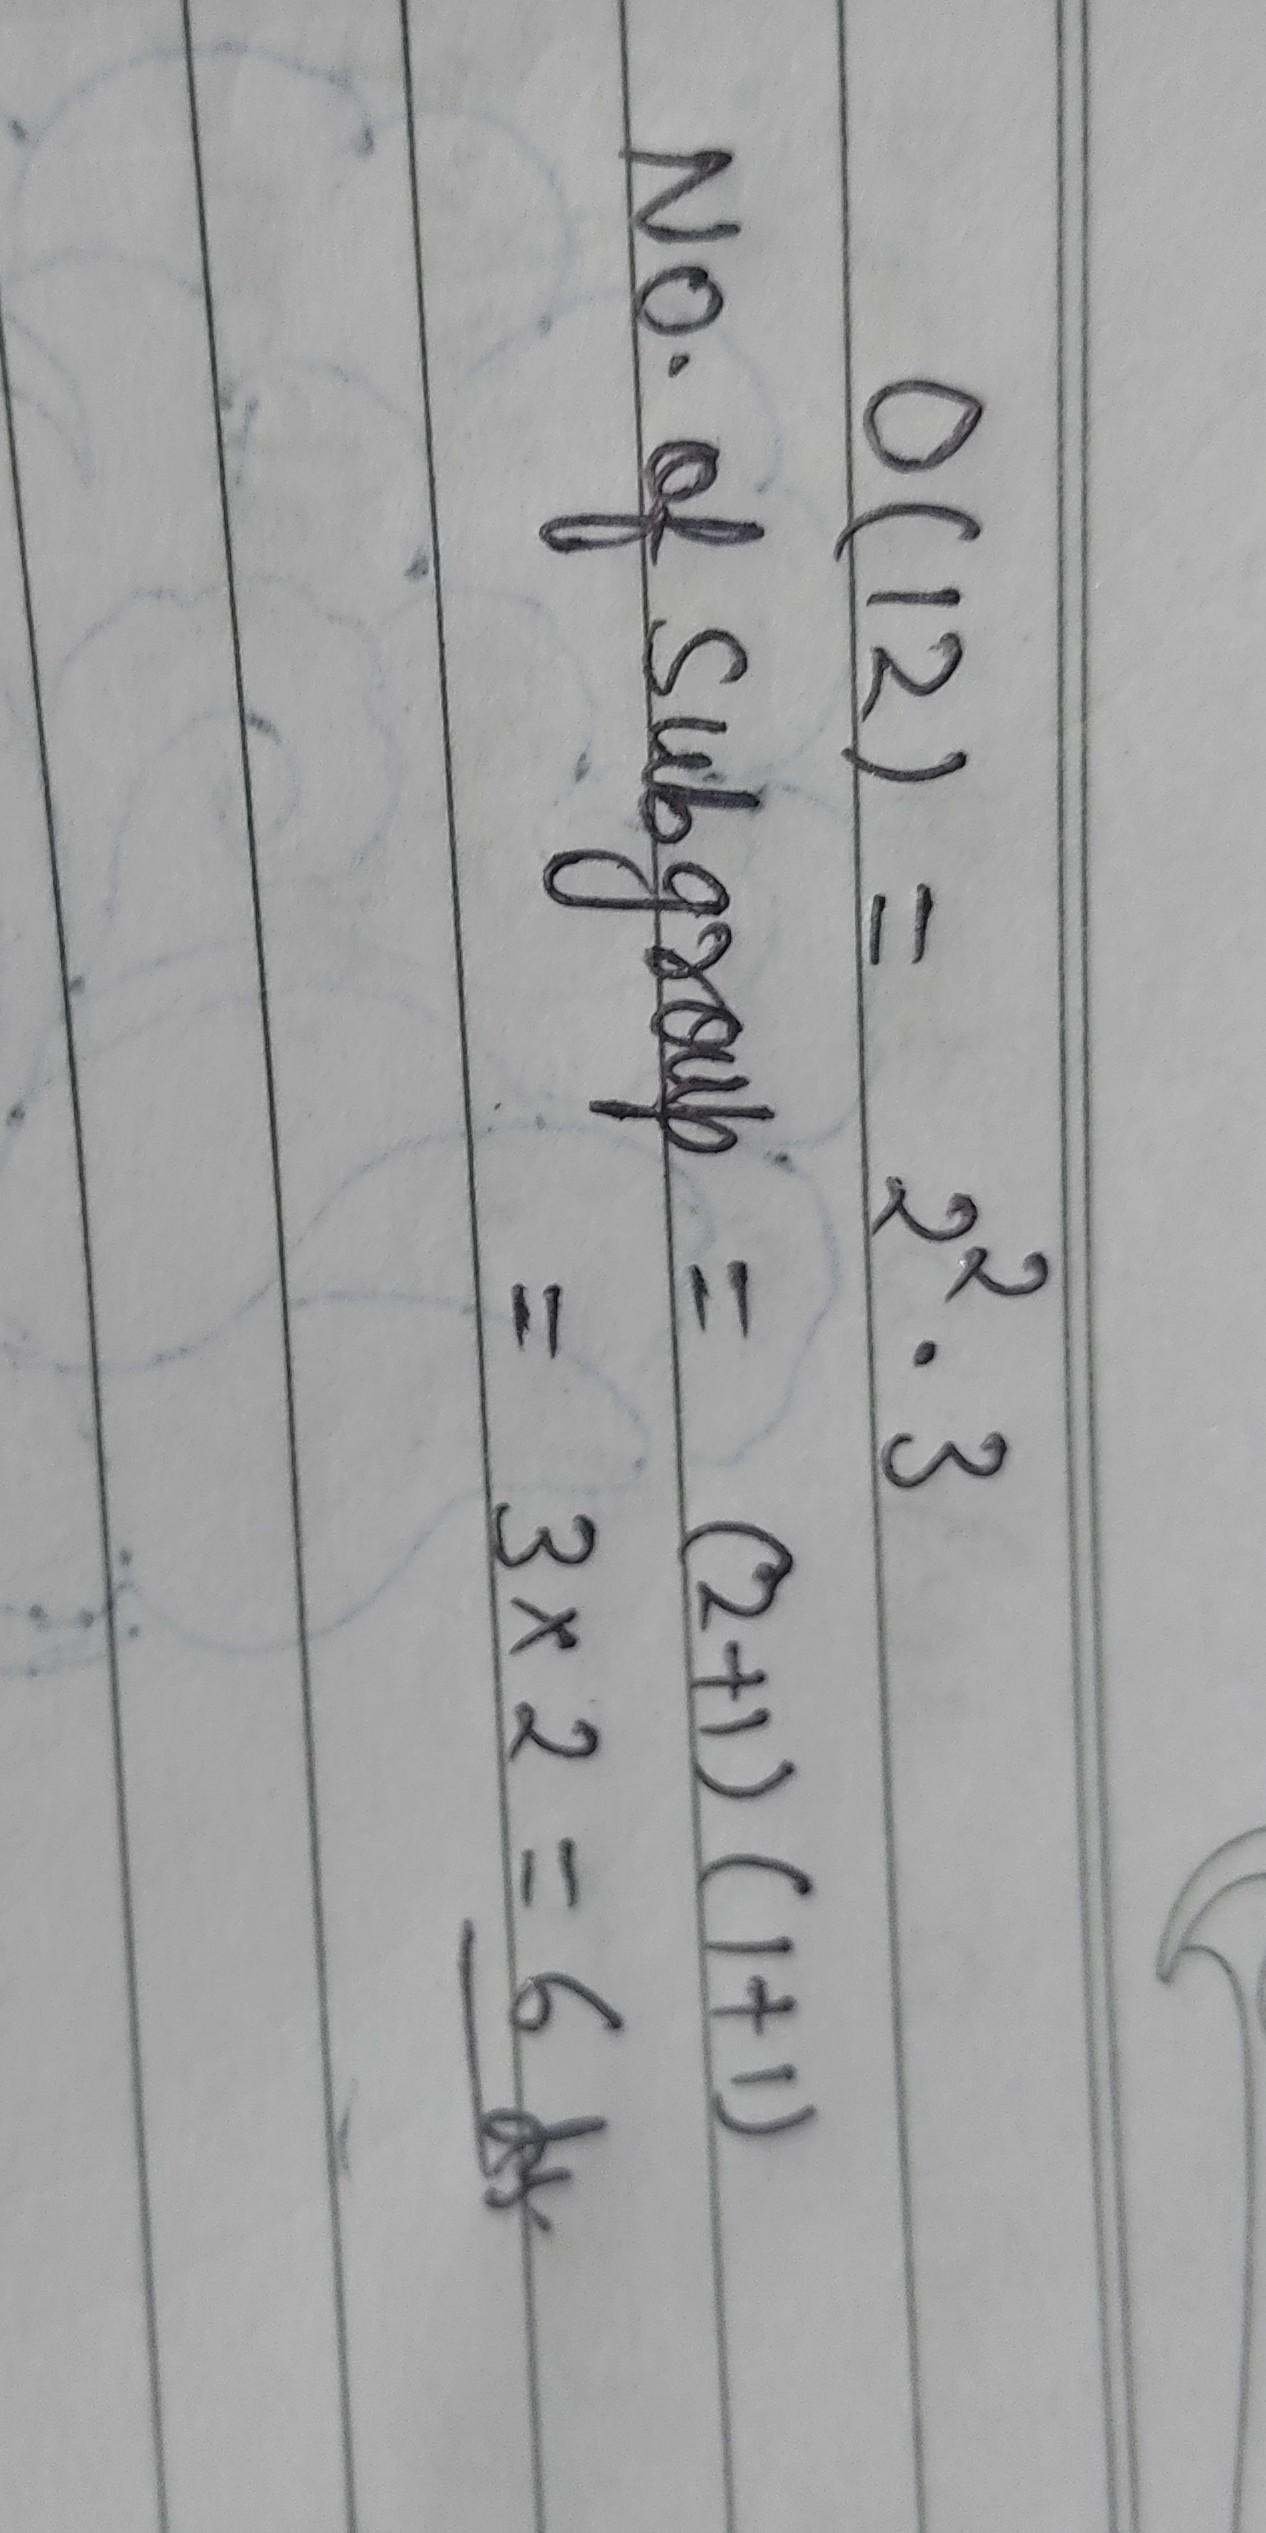 O(12) = 2².3
No. of Subgroup = (2+1)(1+1)
= 3×2 = 6